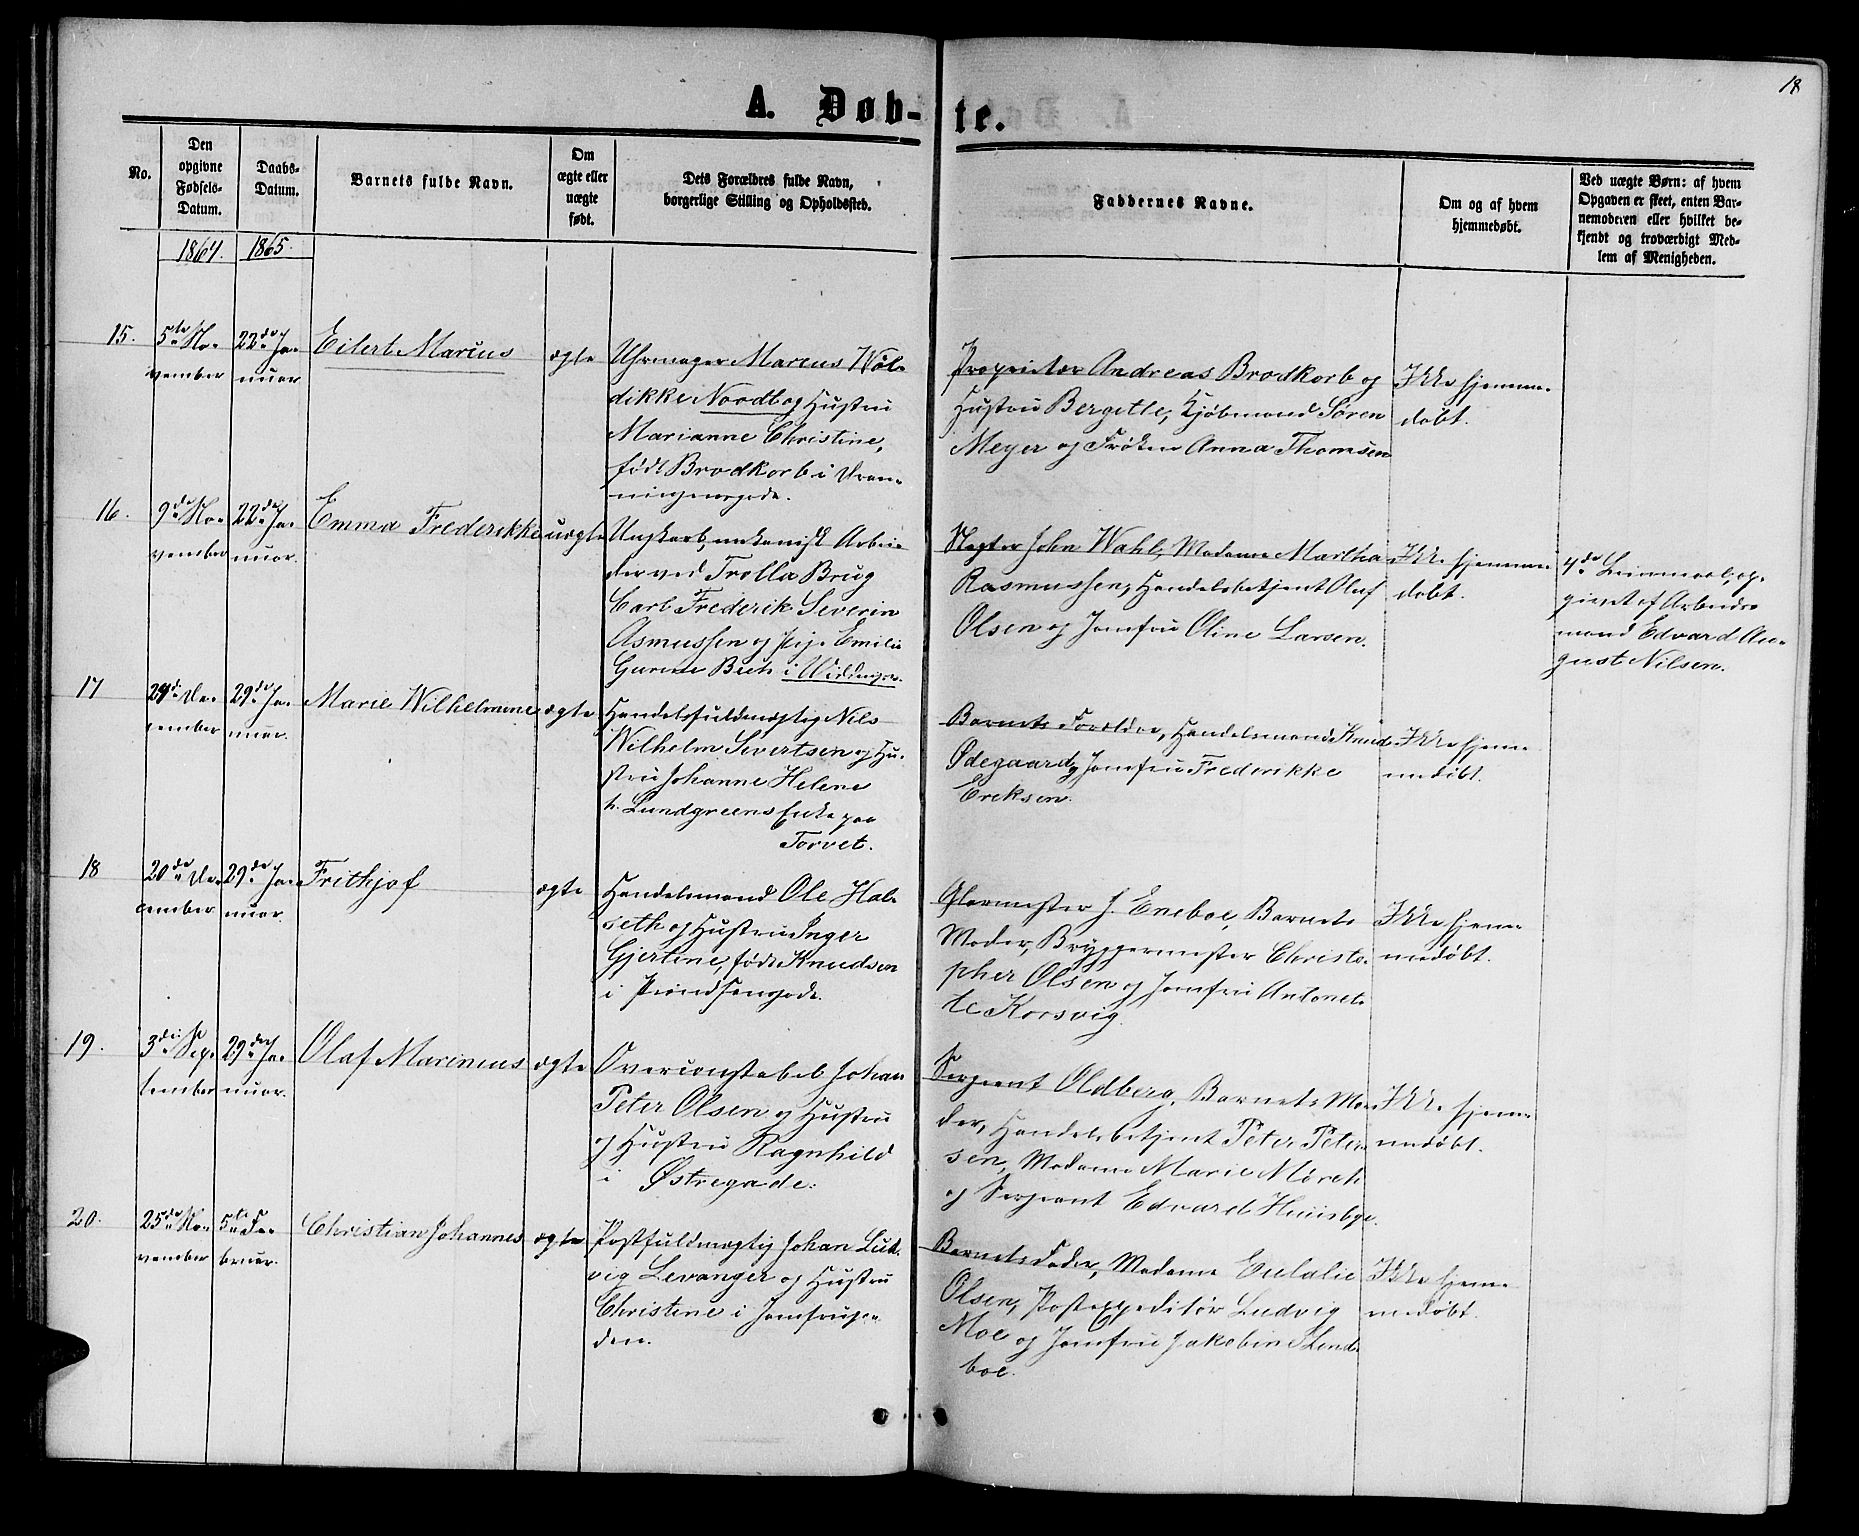 18
A. Døb-te.
No.
Den opgivne Fødsels-Datum.
Daabs-Datum.
Barnets fulde Navn.
Om ægte eller uægte født.
Dets Forældres fulde Navn,
borgerlige Stilling og Opholdssted.
Faddernes Navne.
Om og af hvem
hjemmedøbt.
Ved uægte Børn: af hvem
Opgaven er skeet, enten Bar-
nemoderen eller hvilket be-
kjendt og troværdigt Med-
lem af Menigheden.
1864. 1865.
15. 5te No- 22de Ja- Eilert Marius ægte Uhrmager Marcus Wøl-
vember nuar dikke Nordb og Hustru
Marianne Christine,
født Brodkorb i Dron-
ningensgade.
Proprietær Andreas Brodkorb og
Hustru Bergitte, Kjøbmand Søren
Meyer og Frøken Anna Thomsen
Ikke hjemme-
døbt.
16. 9de No- 22de Ja- Emma Frederikke uægte Ungkarl, mekanisk Arbei-
vember nuar. der ved Trolla Brug
Carl Frederik Severin
Asmussen og Pige Emilie
Gurine Bech i
John Wahl, Madame Martha
Rasmussen, Handelsbetjent Oluf
Olsen og Jomfru Oline Larsen.
Ikke hjemme-
døbt.
4de Leiermaal, op-
givet af Arbeids-
mand Edvard Au-
gust Nilsen.
17 29de De- 29de Ja- Marie Wilhelmine ægte Handelsfuldmægtig Nils
cember nuar. Wilhelm Sivertsen og Hu-
stru Johanne Helene
h. Lundgreens Enke paa
Torvet.
Barnets Forældre, Handelsmand Knud
Ødegaard, Jomfru Frederikke
Ereksen.
Ikke hjem-
medøbt.
18 20de De- 29de Ja- Frithjof ægte Handelsmand Ole Hal-
cember nuar. seth og Hustru Inger
Gjertine, født Knudsen
i Prindsensgade.
Glarmester J. Eneboe, Barnets
Moder, Bryggermester Christo-
pher Olsen og Jomfru Antonet-
te Korsvig.
Ikke hjem-
medøbt.
19. 3die Sep- 29de Ja- Olaf Marinius ægte Overconstabel Johan
tember nuar. Peter Olsen og Hustru
og Hustru Ragnhild
i Østregade.
Sergeant Oldberg, Barnets Mo-
der, Handelsbetjent Peter Peter-
sen, Madame Marie Mørch
og Sergeant Edvard Huusbye.
Ikke hjem-
medøbt.
20. 25de No- 5te Fe- Christian Johannes ægte Postfuldmægtig Johan Lud-
vember bruar. vig Levanger og Hustru
Christine i Jomfruga-
den.
Barnets Fader, Madame Eulalie
Olsen, Postexpeditør Ludvig
Moe og Jomfru Jakobine Lind-
boe.
Ikke hjem-
medøbt.